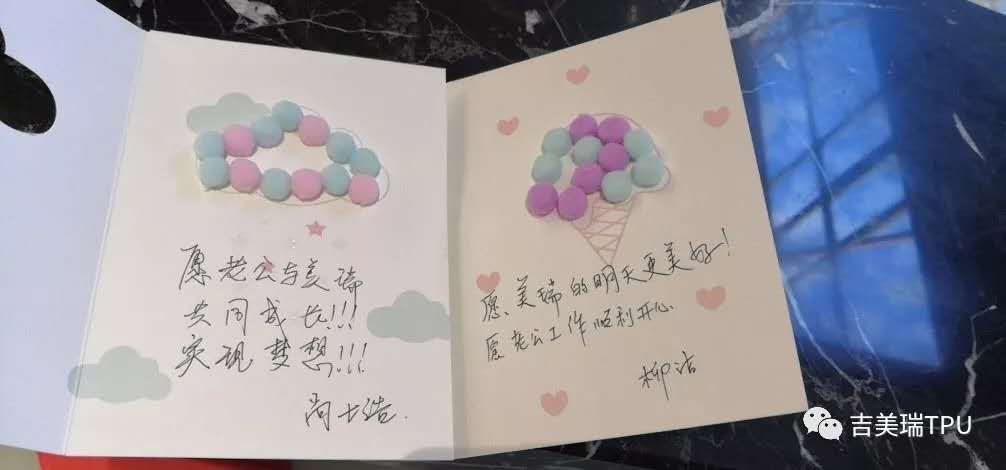 愿老公与美瑞
共同成长!!!
实现梦想!!!
尚士浩.
愿美瑞的明天更美好!
愿老公工作顺利开心.
柳洁
吉美瑞TPU